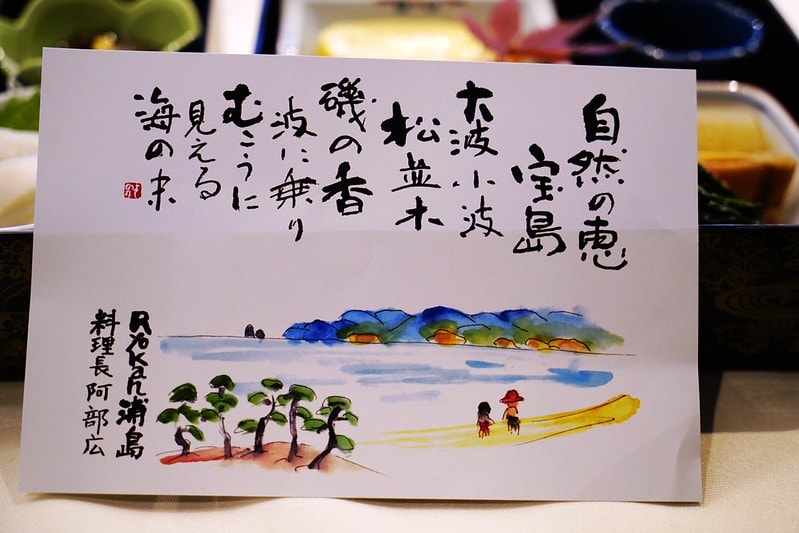 自然の恵
宝島
大波小波
松並木
磯の香
波に乗り
むこうに
見える
海の
Ryokan浦島
料理長阿部広